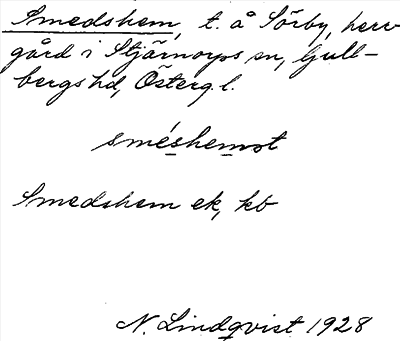 Smedshem, t. å Sörby, herr
gård i Stjärnorps sn, Gull-
bergs hd, Österg. l.
sméshemot
Smedshem ek, kb
N. Lindqvist 1928